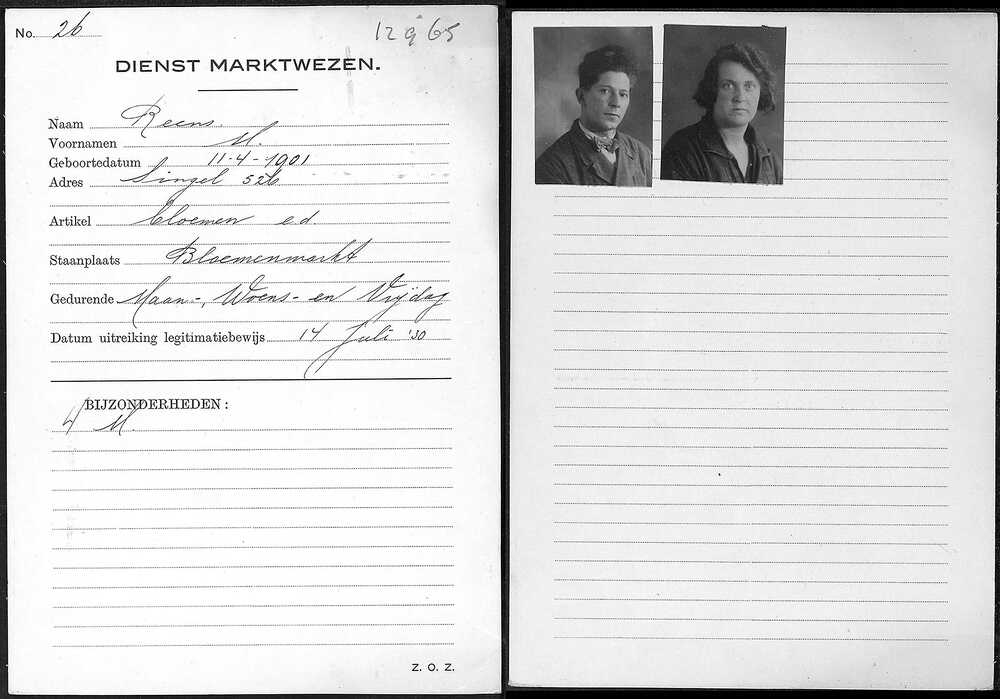 No. 26
12965
DIENST MARKTWEZEN.
Naam Reens.
Voornamen M.
Geboortedatum 11-4-1901
Adres Singel 526
Artikel bloemen e.d.
Staanplaats Bloemenmarkt
Gedurende Maan-, Woens- en Vrijdag
Datum uitreiking legitimatiebewijs 14 Juli '30
BIJZONDERHEDEN:
4 M.
Z. O. Z.